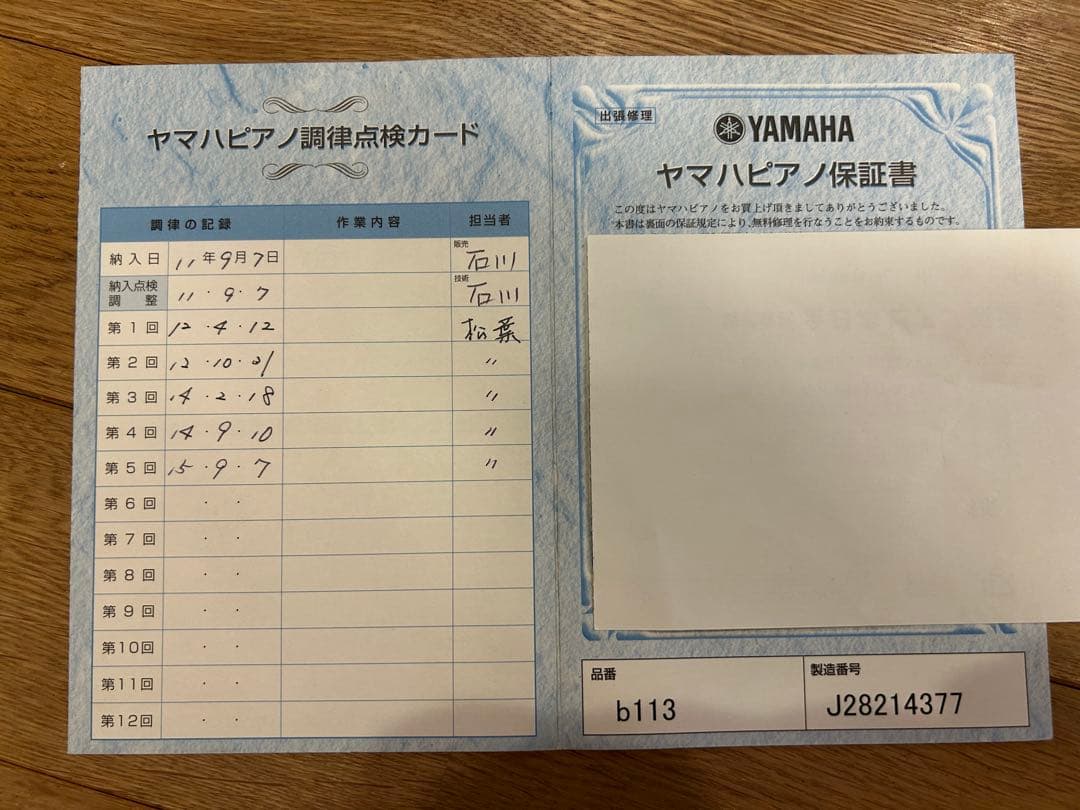 ヤマハピアノ調律点検カード
調律の記録 作業内容 担当者
納入日 11年9月7日 販売 石川
納入点検調整 11・9・7 技術 石川
第1回 12・4・12 松葉
第2回 12・10・21 〃
第3回 14・2・18 〃
第4回 14・9・10 〃
第5回 15・9・7 〃
第6回 ・ ・
第7回 ・ ・
第8回 ・ ・
第9回 ・ ・
第10回 ・ ・
第11回 ・ ・
第12回 ・ ・
出張修理
YAMAHA
ヤマハピアノ保証書
この度はヤマハピアノをお買上げ頂きましてありがとうございました。
本書は裏面の保証規定により、無料修理を行なうことをお約束するものです。
品番 製造番号
b113 J28214377